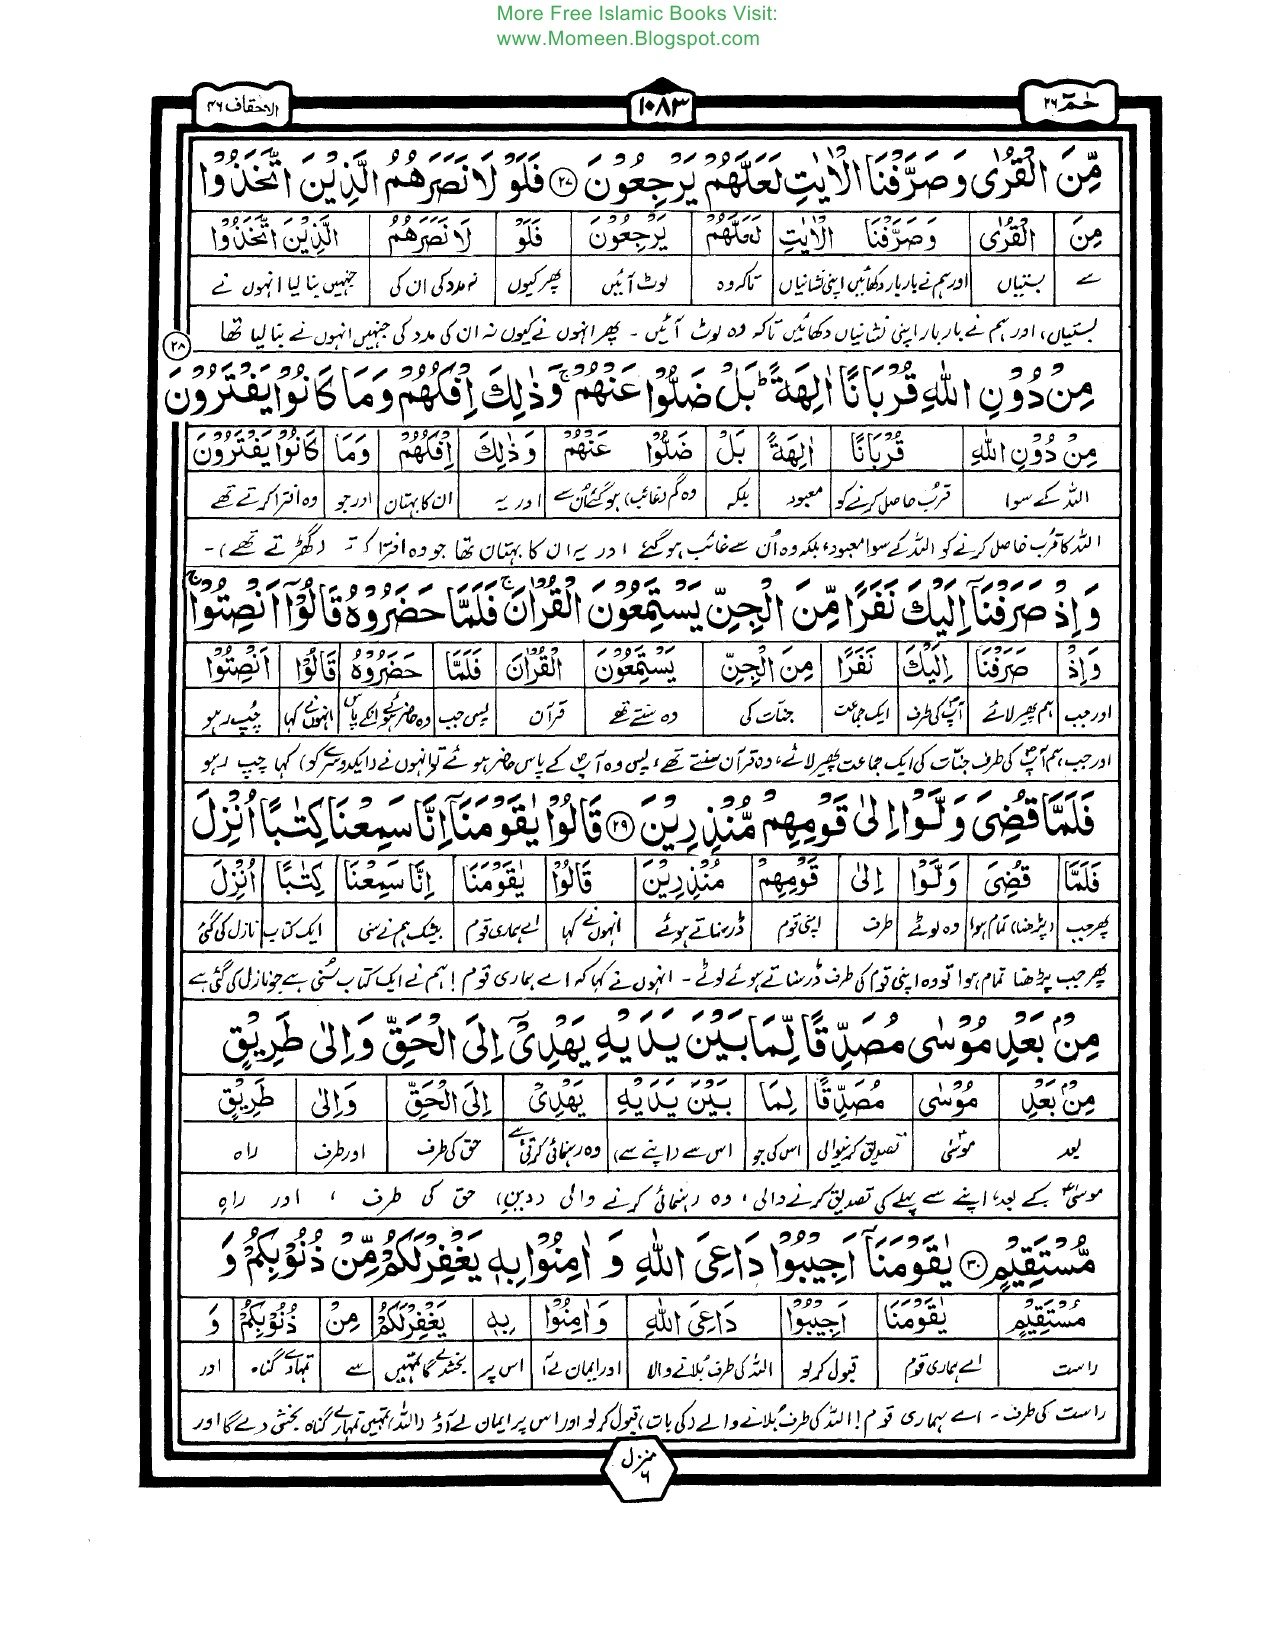 More Free Islamic Books Visit:
www.Momeen.Blogspot.com
حٰمٓ ۲۶
۱۰۸۳
الاحقاف ۴۶
مِّنَ الْقُرٰى وَصَرَّفْنَا الْاٰيٰتِ لَعَلَّهُمْ يَرْجِعُوْنَ ﴿۲۷﴾ فَلَوْ لَا نَصَرَهُمُ الَّذِيْنَ اتَّخَذُوْا
مِنَ الْقُرٰى وَصَرَّفْنَا الْاٰيٰتِ لَعَلَّهُمْ يَرْجِعُوْنَ فَلَوْ لَا نَصَرَهُمُ الَّذِيْنَ اتَّخَذُوْا
سے بستیاں اور ہم نے بار بار دکھائیں اپنی نشانیاں تاکہ وہ لوٹ آئیں پھر کیوں نہ مدد کی ان کی جنہیں بنا لیا انہوں نے
بستیاں، اور ہم نے بار بار اپنی نشانیاں دکھائیں تاکہ وہ لوٹ آئیں ۔ پھر انہوں نے کیوں نہ ان کی مدد کی جنہیں انہوں نے بنا لیا تھا
۲۸
مِنْ دُوْنِ اللّٰهِ قُرْبَانًا اٰلِهَةً ؕ بَلْ ضَلُّوْا عَنْهُمْ ۚ وَذٰلِكَ اِفْكُهُمْ وَمَا كَانُوْا يَفْتَرُوْنَ
مِنْ دُوْنِ اللّٰهِ قُرْبَانًا اٰلِهَةً بَلْ ضَلُّوْا عَنْهُمْ وَذٰلِكَ اِفْكُهُمْ وَمَا كَانُوْا يَفْتَرُوْنَ
اللہ کے سوا قرب حاصل کرنے کو معبود بلکہ وہ گم (غائب) ہو گئے ان سے اور یہ ان کا بہتان اور جو وہ افترا کرتے تھے
اللہ کا قرب حاصل کرنے کو اللہ کے سوا معبود، بلکہ وہ اُن سے غائب ہو گئے اور یہ ان کا بہتان تھا جو وہ افترا کرتے (گھڑتے تھے) ۔
وَاِذْ صَرَفْنَاۤ اِلَيْكَ نَفَرًا مِّنَ الْجِنِّ يَسْتَمِعُوْنَ الْقُرْاٰنَ ۚ فَلَمَّا حَضَرُوْهُ قَالُوْۤا اَنْصِتُوْا ۚ
وَاِذْ صَرَفْنَا اِلَيْكَ نَفَرًا مِنَ الْجِنِّ يَسْتَمِعُوْنَ الْقُرْاٰنَ فَلَمَّا حَضَرُوْهُ قَالُوْا اَنْصِتُوْا
اور جب ہم پھیر لائے آپؐ کی طرف ایک جماعت جنات کی وہ سنتے تھے قرآن پس جب وہ حاضر ہوئے انکے پاس انہوں نے کہا چپ رہو
اور جب ہم آپؐ کی طرف جنّات کی ایک جماعت پھیر لائے، وہ قرآن سنتے تھے، پس وہ آپؐ کے پاس حاضر ہوئے تو انہوں نے (ایکدوسرے کو) کہا چپ رہو
فَلَمَّا قُضِىَ وَلَّوْا اِلٰى قَوْمِهِمْ مُّنْذِرِيْنَ ﴿۲۹﴾ قَالُوْا يٰقَوْمَنَاۤ اِنَّا سَمِعْنَا كِتٰبًا اُنْزِلَ
فَلَمَّا قُضِىَ وَلَّوْا اِلٰى قَوْمِهِمْ مُنْذِرِيْنَ قَالُوْا يٰقَوْمَنَا اِنَّا سَمِعْنَا كِتٰبًا اُنْزِلَ
پھر جب (پڑھنا) تمام ہوا وہ لوٹے طرف اپنی قوم ڈر سناتے ہوئے انہوں نے کہا اے ہماری قوم بیشک ہم نے سنی ایک کتاب نازل کی گئی
پھر جب پڑھنا تمام ہوا تو وہ اپنی قوم کی طرف ڈر سناتے ہوئے لوٹے ۔ انہوں نے کہا کہ اے ہماری قوم ! ہم نے ایک کتاب سُنی ہے جو نازل کی گئی ہے
مِنْۢ بَعْدِ مُوْسٰى مُصَدِّقًا لِّمَا بَيْنَ يَدَيْهِ يَهْدِىْۤ اِلَى الْحَقِّ وَاِلٰى طَرِيْقٍ
مِنْۢ بَعْدِ مُوْسٰى مُصَدِّقًا لِمَا بَيْنَ يَدَيْهِ يَهْدِىْ اِلَى الْحَقِّ وَاِلٰى طَرِيْقٍ
بعد موسیٰؑ تصدیق کرنیوالی اس کی جو اس سے (اپنے سے) وہ رہنمائی کرتی ہے حق کی طرف اور طرف راہ
موسیٰؑ کے بعد، اپنے سے پہلے کی تصدیق کرنے والی، وہ رہنمائی کرنے والی (دین) حق کی طرف ، اور راہِ
مُّسْتَقِيْمٍ ﴿۳۰﴾ يٰقَوْمَنَاۤ اَجِيْبُوْا دَاعِىَ اللّٰهِ وَ اٰمِنُوْا بِهٖ يَغْفِرْ لَكُمْ مِّنْ ذُنُوْبِكُمْ وَ
مُسْتَقِيْمٍ يٰقَوْمَنَا اَجِيْبُوْا دَاعِىَ اللّٰهِ وَ اٰمِنُوْا بِهٖ يَغْفِرْ لَكُمْ مِنْ ذُنُوْبِكُمْ وَ
راست اے ہماری قوم قبول کر لو اللہ کی طرف بُلانے والا اور ایمان لے آؤ اس پر بخشدے گا تمہیں سے تمہارے گناہ اور
راست کی طرف ۔ اے ہماری قوم ! اللہ کی طرف بُلانے والے (کی بات) قبول کر لو اور اس پر ایمان لے آؤ (اللہ) تمہیں تمہارے گناہ بخشدے گا اور
منزل ۶